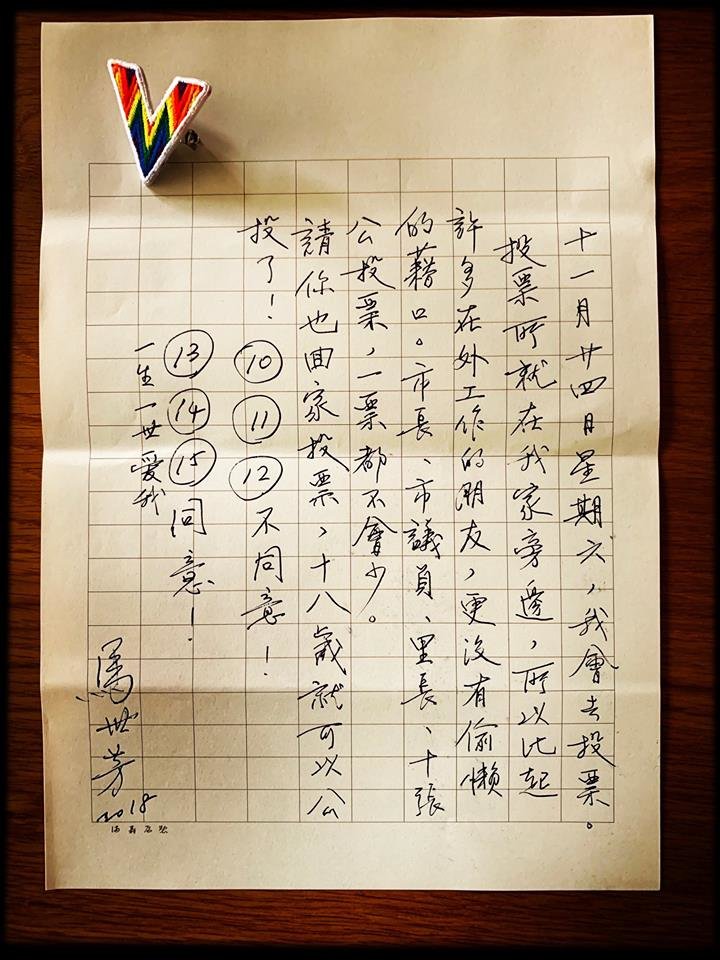 十一月廿四日星期六，我會去投票。
投票所就在我家旁邊，所以比起
許多在外工作的朋友，更沒有偷懶
的藉口。市長、市議員、里長、十張
公投票，一票都不會少。
請你也回家投票，十八歲就可以公
投了！
⑩⑪⑫不同意！
⑬⑭⑮同意！
一生一世愛我
馬世芳
2018
V